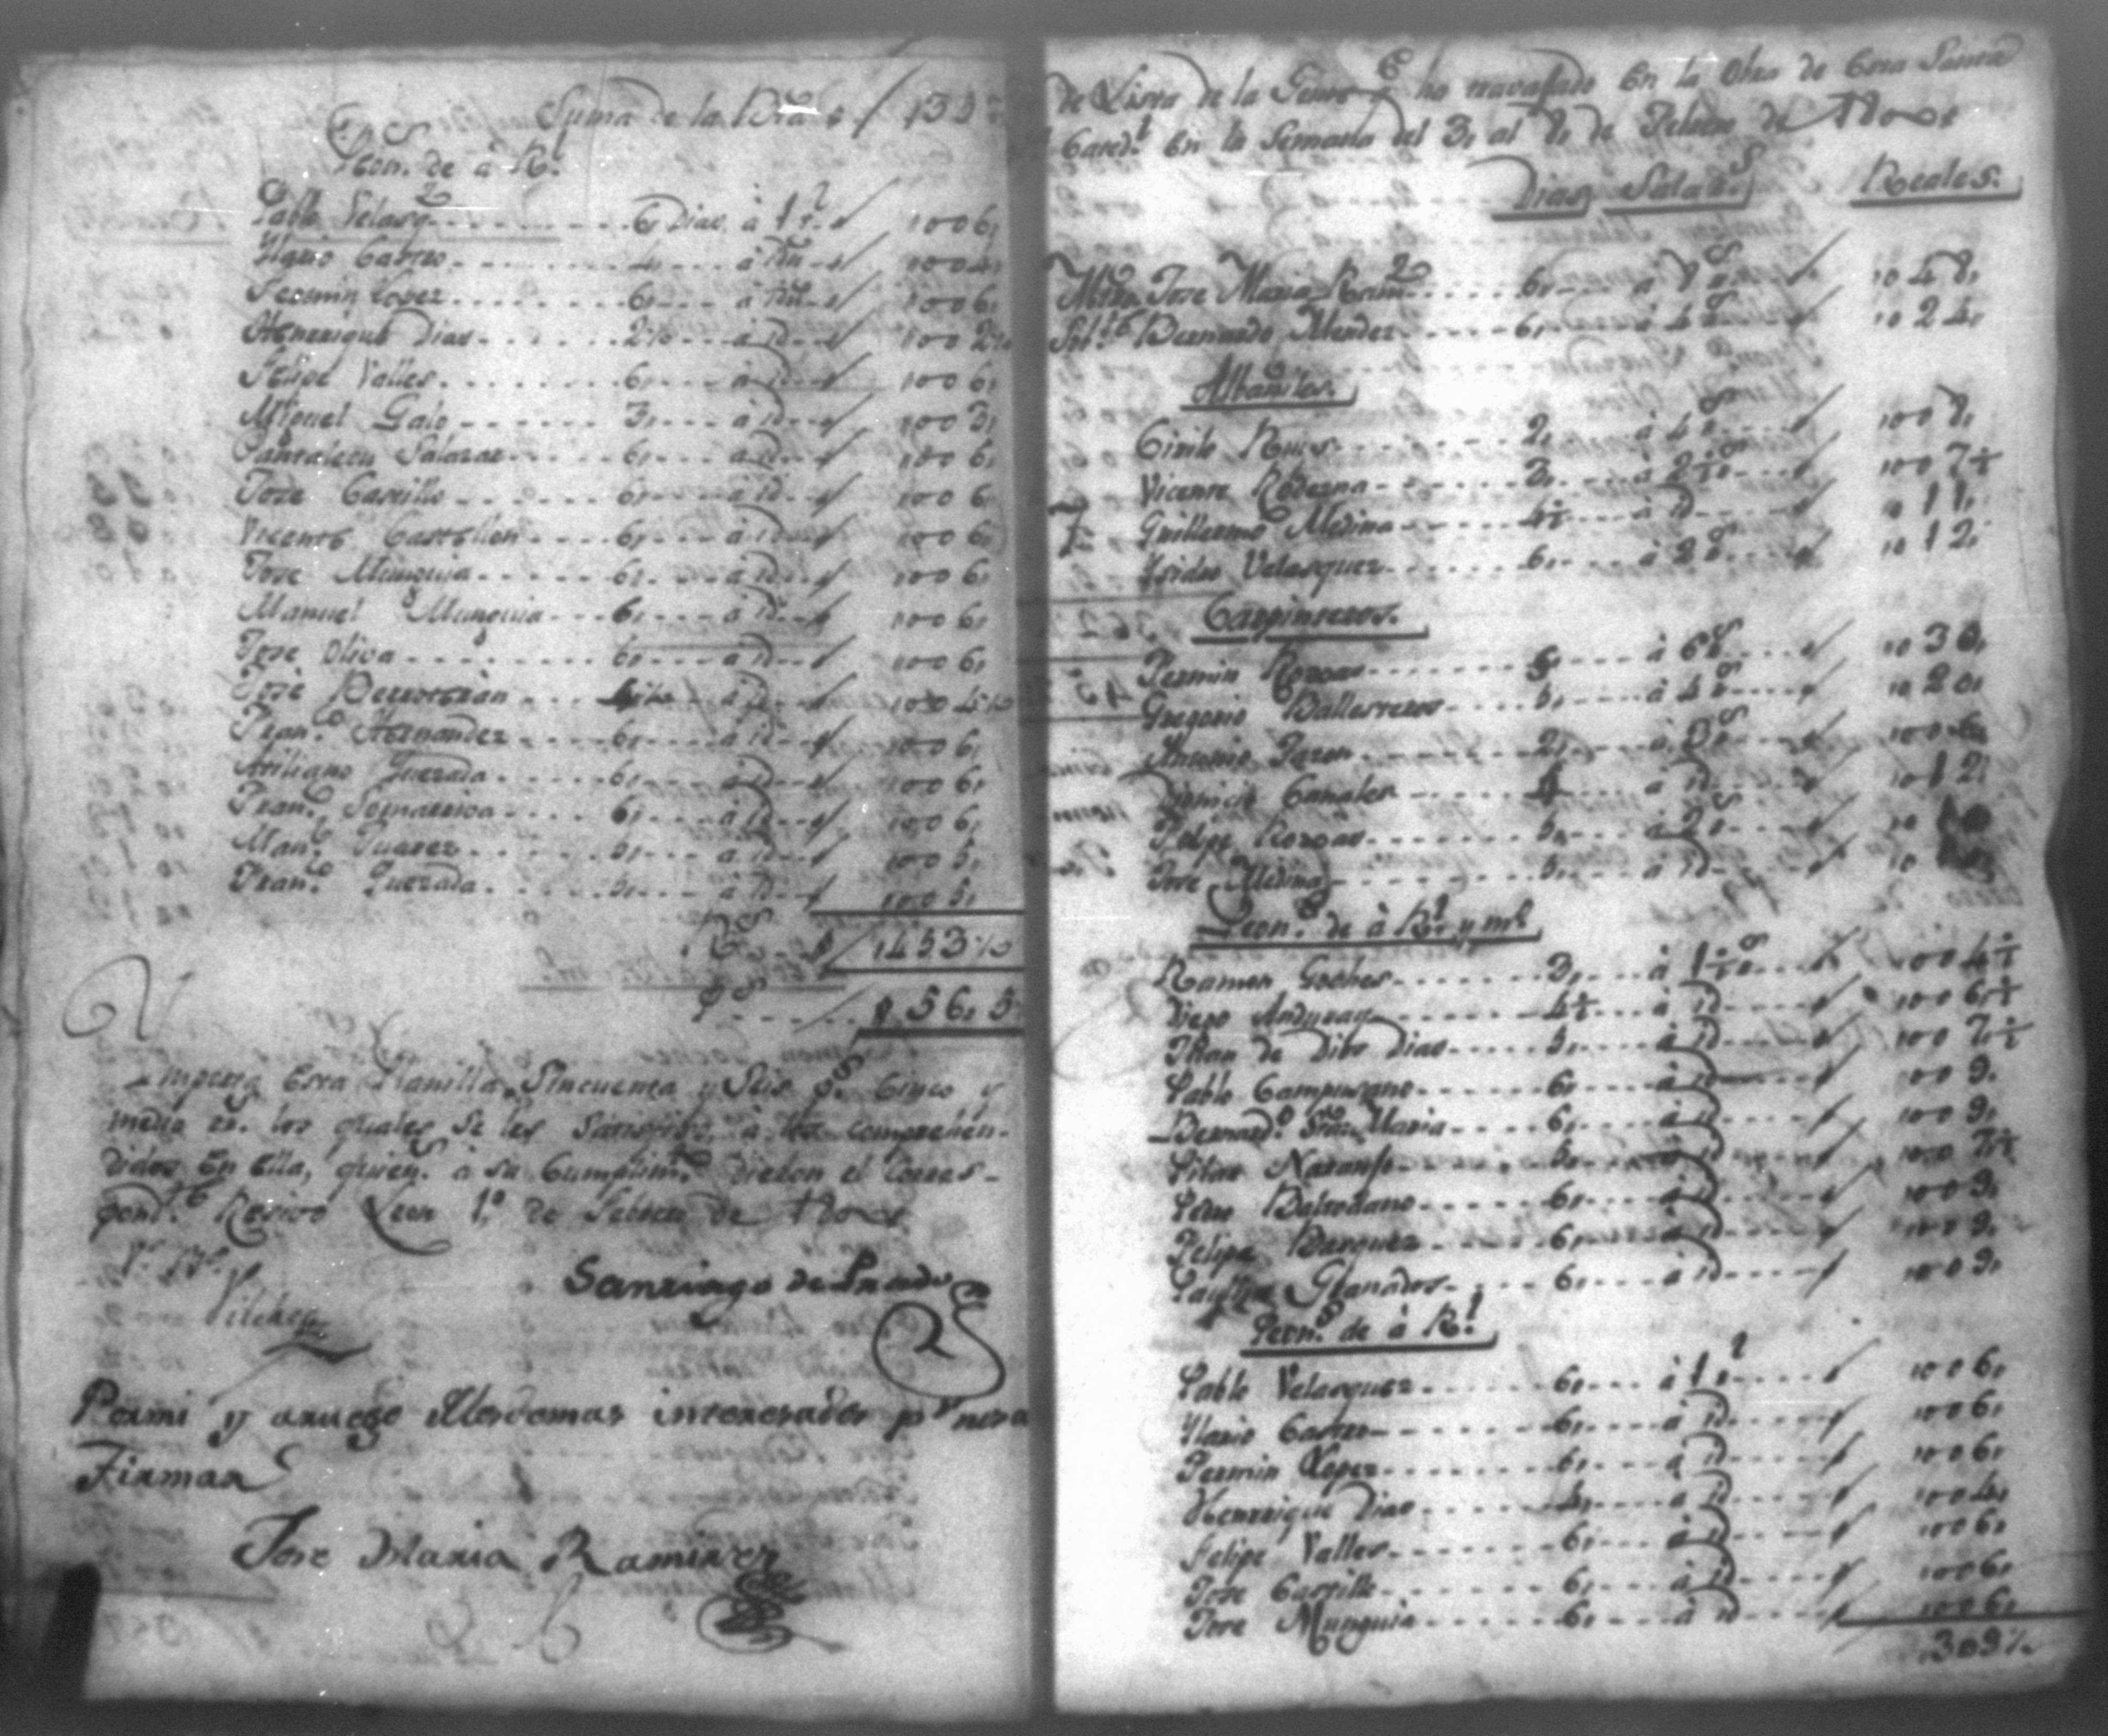 Suma de la Bta
Peon.s de à R.l
Pablo Velasq.z 6, Dias à 1 r.l 006,
Ylario Castro 4, à id 004,
Fermin Lopez 6, à id 006,
Henrrique Dias 2½ à id 002½
Felipe Valles 6, à id 006,
Miguel Galo 3, à id 003,
Pantaleon Salazar 6, à id 006,
Jose Castillo 6, à id 006
Vicente Castellon 6, à id 006,
Jose Munguia 6, à id 006,
Manuel Munguia 6, à id 006,
Jose Oliva 6, à id 006,
Josè à id 004½
Fran.co Hernandez 6, à id 006,
Quezada 6, à id 006,
Fran.co Somarriva 6, à id 006,
Man.l Juarez 5, à id 005,
Fran.co Quezada 5, à id 005,
R.s 453½
p.s 56, 5
Ymporta Esta Planilla, Sincuenta y Seis p.s Cinco y
medio rr. los quales se les Satisfizo, à los comprehen-
didos En Ella, quien.s à su Cumplim.to dieron el Corres-
pond.te Recivo Leon 1.o de Febrero de
V.o B.o
Vilches
Santiago de Prado
Pormi y aruego de losdemas interesados p.r nosa
Firmar
Jose Maria Ramirez
de Lista de la Gente q.e ha travajado En la Obra de Esta Santa
Cated.l En la Semana del 3, al 8, de Febrero de
Dias Salar.s Reales.
Mtro Jose Maria Ram.z 6, à 8 r.s 048,
Bernardo Mendez 6, à 4 r.s 024,
Albañiles.
Cirilo Ruis 2, à 4 r.s 008,
Vicente Roderna 3, à 2½ r.s 007½
Guillermo Medina 4½ à id 11,
Ysidro Velasquez 6, à 2 r.s 012,
Carpinteros.
Fermin Rozas à 6 r.s 030,
Gregorio Ballesteros 5, à 4 r.s 020,
Antonio 2, à 3 r.s 006
Canales 4 à id 012,
Felipe Rozas 5, à 2 r.s
Jose Medina 5, à id
Peon.s de à R.l y m.o
Ramon Goches 3, à 1½ r.s 004½
Diego Anduray 4½ à id 006½
Jhan de Dios Dias 5, à id 007½
Pablo Campusano 6, à id 009,
Bernard.o Sta. Maria 6, à id 009,
Pilar Naranjo 5, à id 007½
Pedro Baltodano 6, à id 009,
Felipe Basquez 6, à id 009,
Granados 6, à id 009,
Peon.s de à R.l
Pablo Velasquez 6, à 1 r.l 006,
Ylario Castro 6, à id 006,
Fermin Lopez 6, à id 006,
Henrrique Dias 4, à id 004,
Felipe Valles 6, à id 006,
Jose Castillo 6, à id 006,
Jose Munguia 6, à id 006,
309½